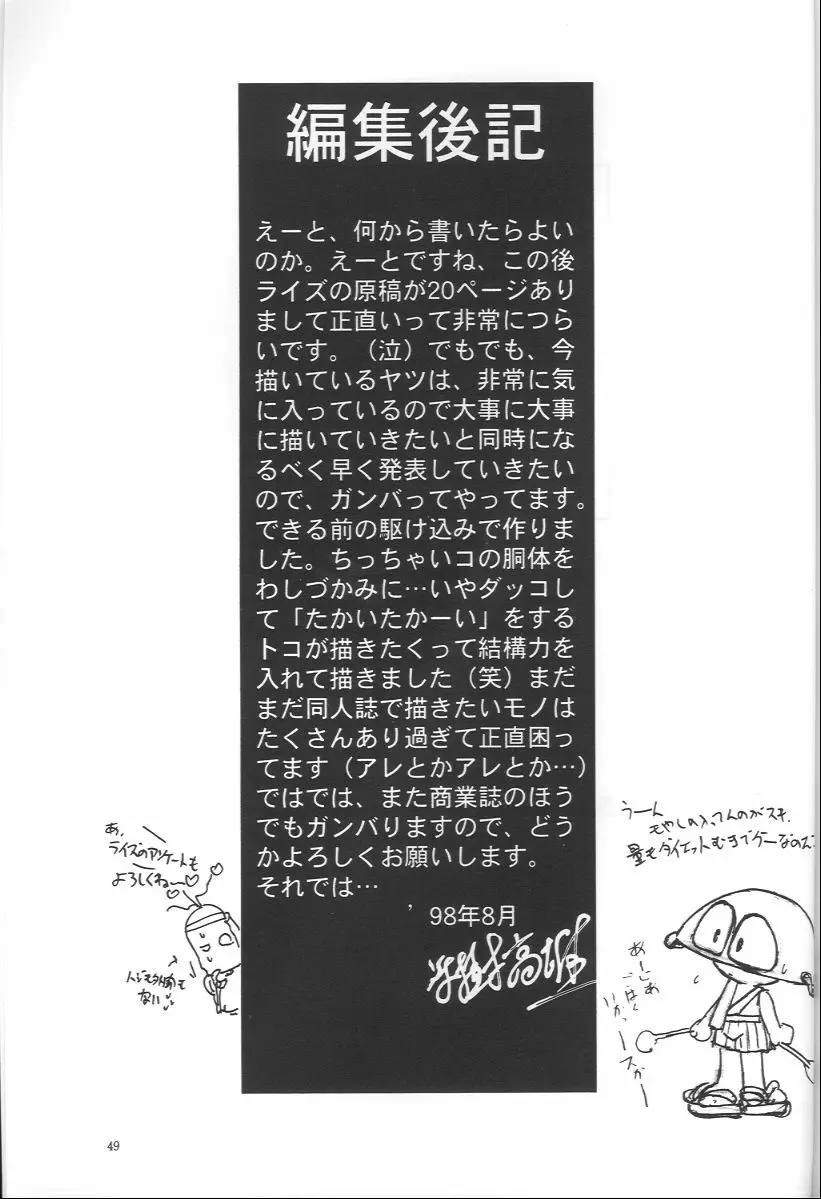 編集後記
えーと、何から書いたらよい
のか。えーとですね、この後
ライズの原稿が20ページあり
まして正直いって非常につら
いです。（泣）でもでも、今
描いているヤツは、非常に気
に入っているので大事に大事
に描いていきたいと同時にな
るべく早く発表していきたい
ので、ガンバってやってます。
できる前の駆け込みで作りま
した。ちっちゃいコの胴体を
わしづかみに…いやダッコし
て「たかいたかーい」をする
トコが描きたくって結構力を
入れて描きました（笑）まだ
まだ同人誌で描きたいモノは
たくさんあり過ぎて正直困っ
てます（アレとかアレとか…）
ではでは、また商業誌のほう
でもガンバりますので、どう
かよろしくお願いします。
それでは…
’98年8月
あ、
ライズのアンケートも
よろしくねー♡
うーん
もやしの入ってんのがスキ.
49